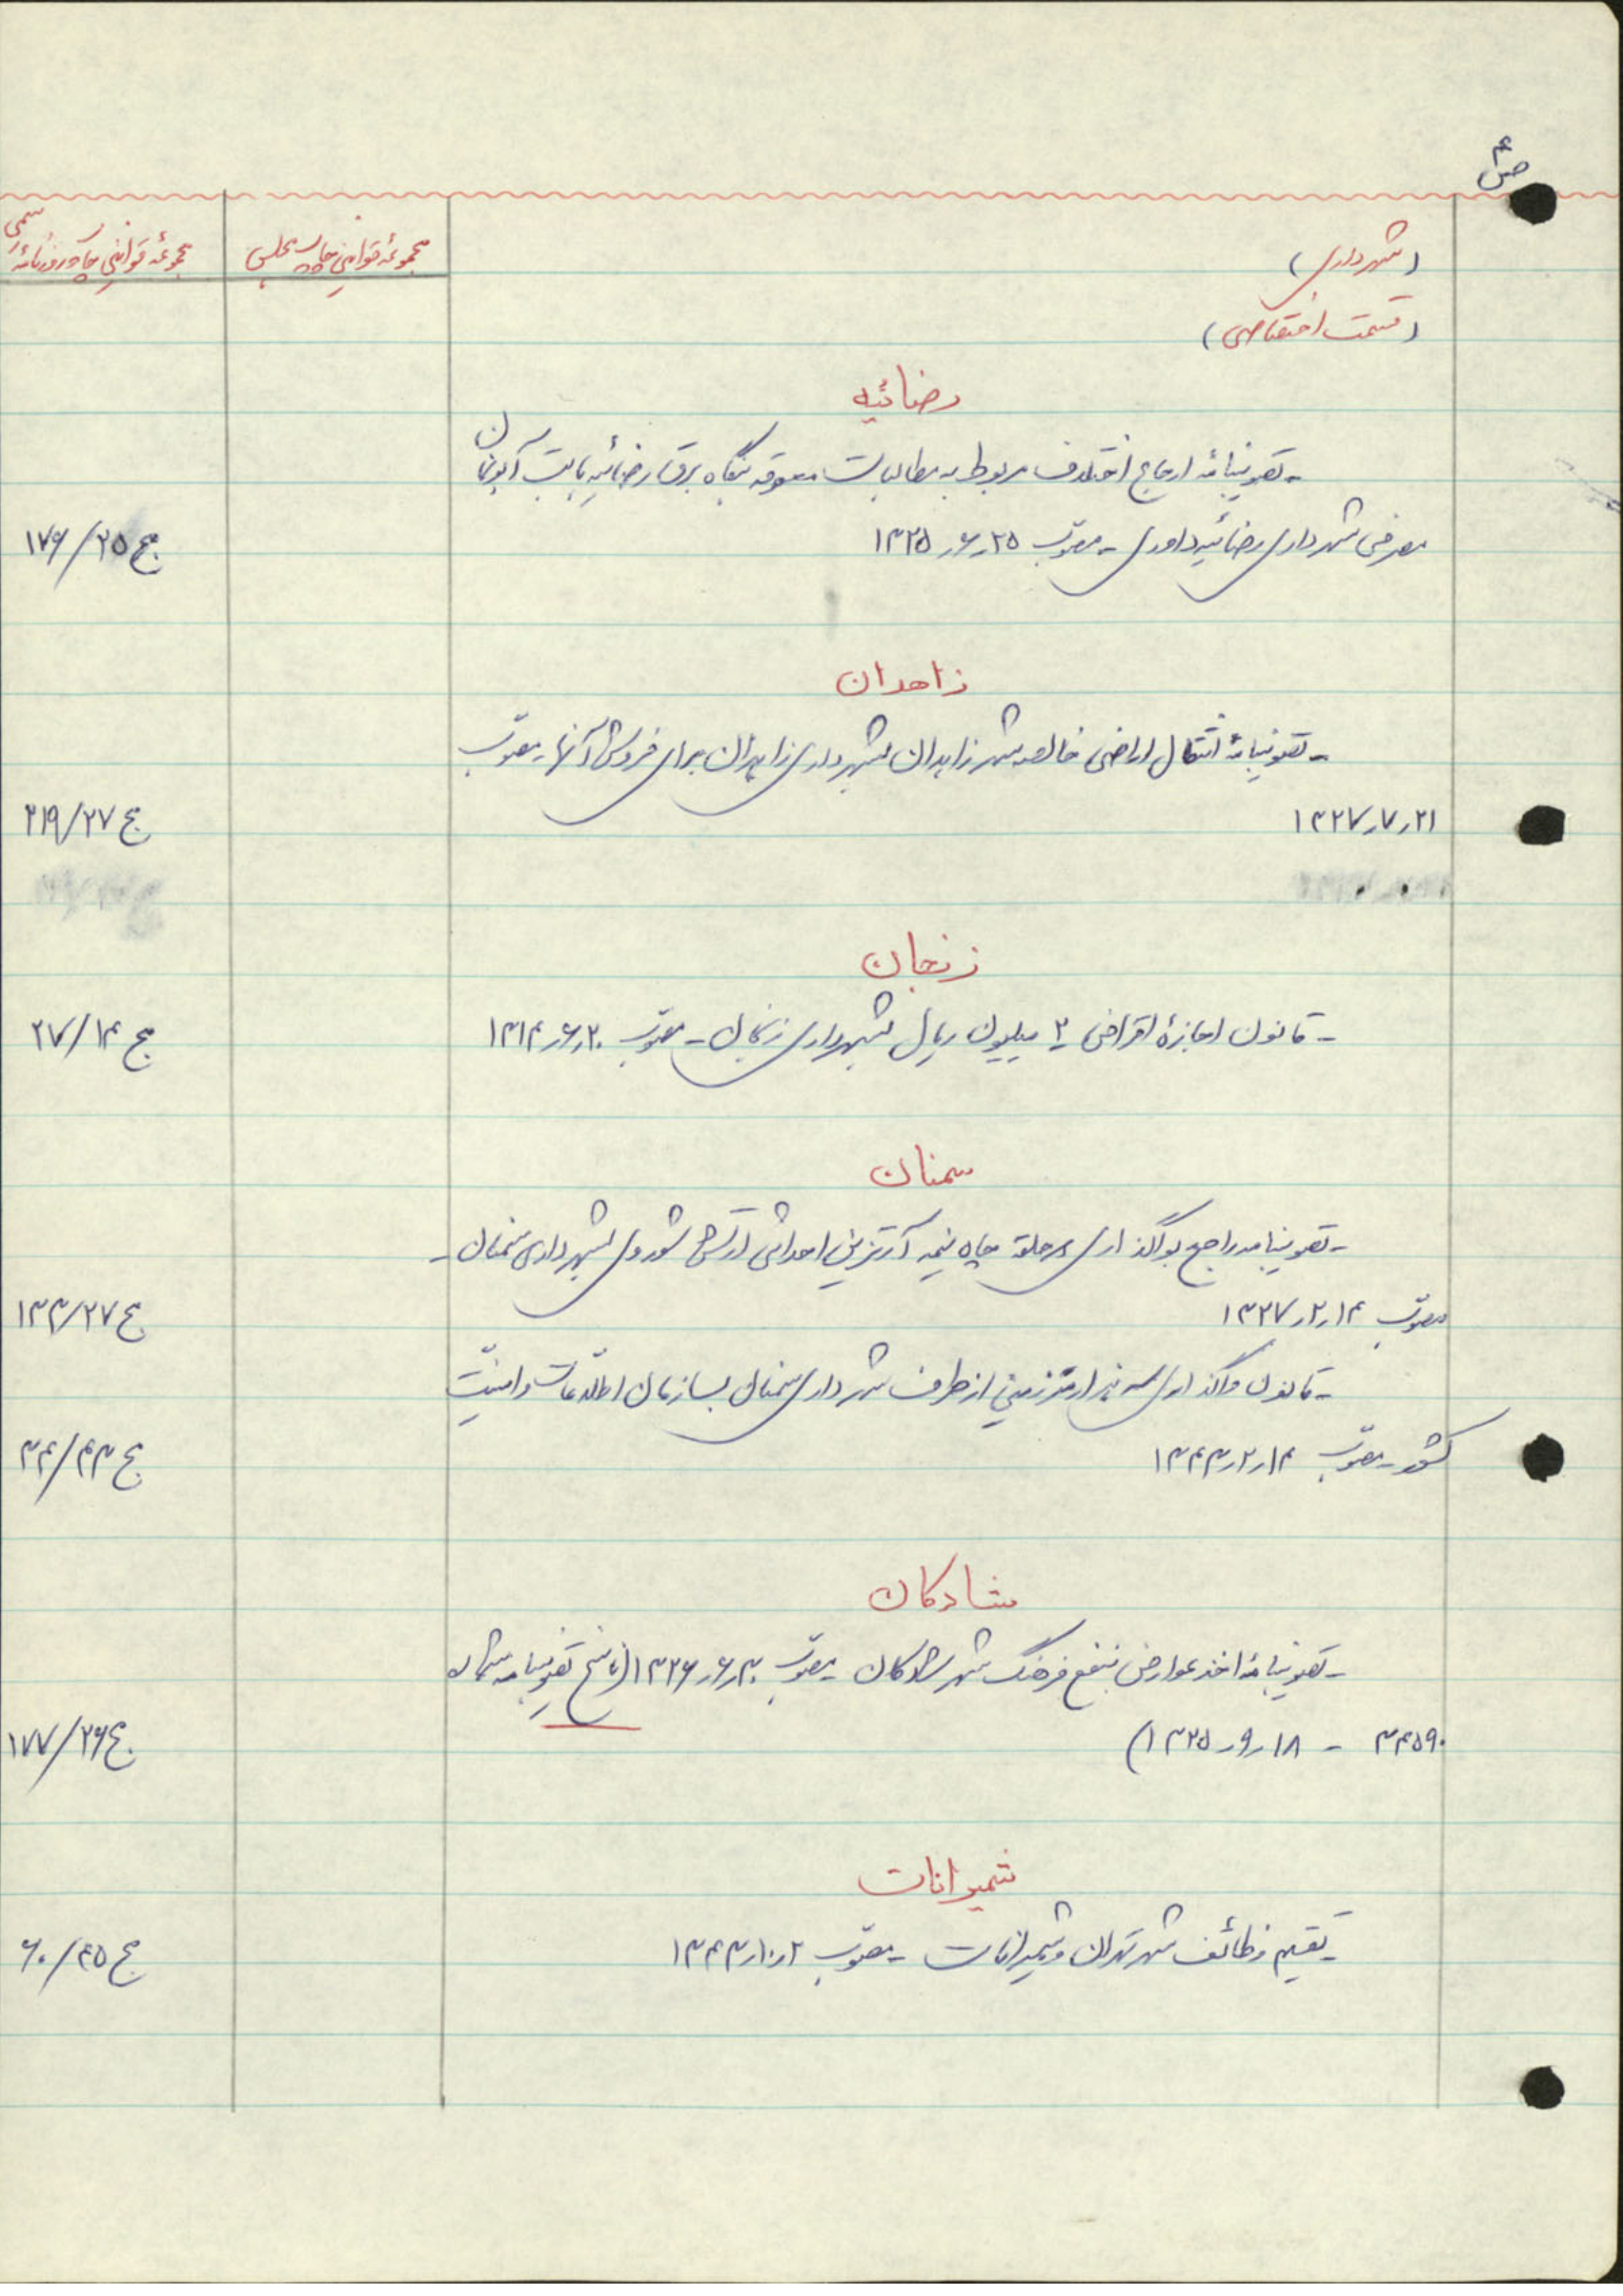 ص۴
(شهرداری)
(قسمت اختصاصی)
مجموعه قوانین چاپ مجلس
مجموعه قوانین چاپ روزنامه رسمی
رضائیه
- تصویبنامه ارجاع اختلاف مربوط به مطالبات معوقه بنگاه برق رضائیه بابت آبونمان
مصرفی شهرداری رضائیه بداوری - مصوب ۲۵ر۶ر۱۳۲۵
ج ۲۵/۱۷۶
زاهدان
- تصویبنامه انتقال اراضی خالصه شهر زاهدان بشهرداری زاهدان برای فروش آنها - مصوب
۲۱ر۷ر۱۳۲۷
ج ۲۷/۲۱۹
زنجان
- قانون اجازه اقتراض ۲ میلیون ریال بشهرداری زنجان - مصوب ۲۰ر۶ر۱۳۱۴
ج ۱۴/۲۷
سمنان
- تصویبنامه راجع بواگذاری سه حلقه چاه نیمه آرتزین احداثی ارتش شوروی بشهرداری سمنان -
مصوب ۱۴ر۲ر۱۳۲۷
ج ۲۷/۱۳۳
- قانون واگذاری سه هزار متر زمین از طرف شهرداری سمنان بسازمان اطلاعات و امنیت
کشور - مصوب ۱۴ر۲ر۱۳۴۳
ج ۴۳/۳۴
شادگان
- تصویبنامه اخذ عوارض بنفع فرهنگ شهر شادگان - مصوب ۳۰ر۶ر۱۳۲۶ (ناسخ تصویبنامه شماره
۳۴۵۹۰ - ۱۸ر۹ر۱۳۲۵)
ج ۲۶/۱۷۷
شمیرانات
- تقسیم وظائف شهر تهران و شمیرانات - مصوب ۲ر۱۰ر۱۳۴۳
ج ۴۵/۶۰